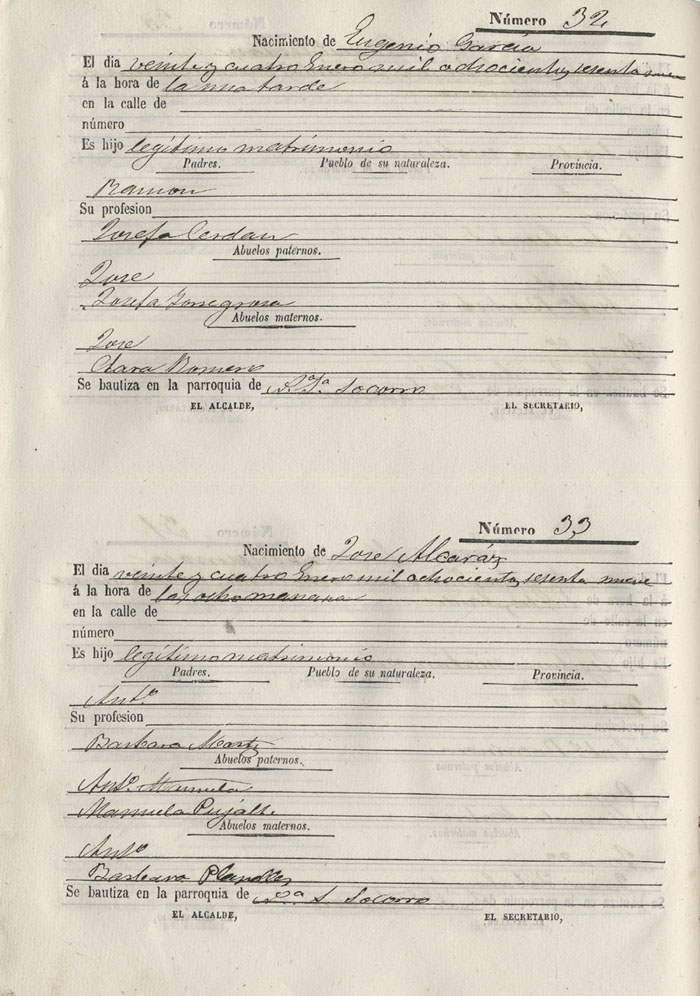 Número 32
Nacimiento de Eugenio García
El dia veinte y cuatro Enero mil ochocientos sesenta nueve
á la hora de la una tarde
en la calle de
número
Es hijo legítimo matrimonio
Padres. Pueblo de su naturaleza. Provincia.
Ramon
Su profesion
Josefa Cerdan
Abuelos paternos.
Jose
Josefa Torregrosa
Abuelos maternos.
Jose
Clara Romero
Se bautiza en la parroquia de Socorro
EL ALCALDE, EL SECRETARIO,
Número 33
Nacimiento de Jose Alcaráz
El dia veinte y cuatro Enero mil ochocientos sesenta nueve
á la hora de las ocho manana
en la calle de
número
Es hijo legítimo matrimonio
Padres. Pueblo de su naturaleza. Provincia.
Antº
Su profesion
Barbara Martz
Abuelos paternos.
Antº Manuela
Manuela Pujalte
Abuelos maternos.
Antº
Barbara
Se bautiza en la parroquia de Socorro
EL ALCALDE, EL SECRETARIO,